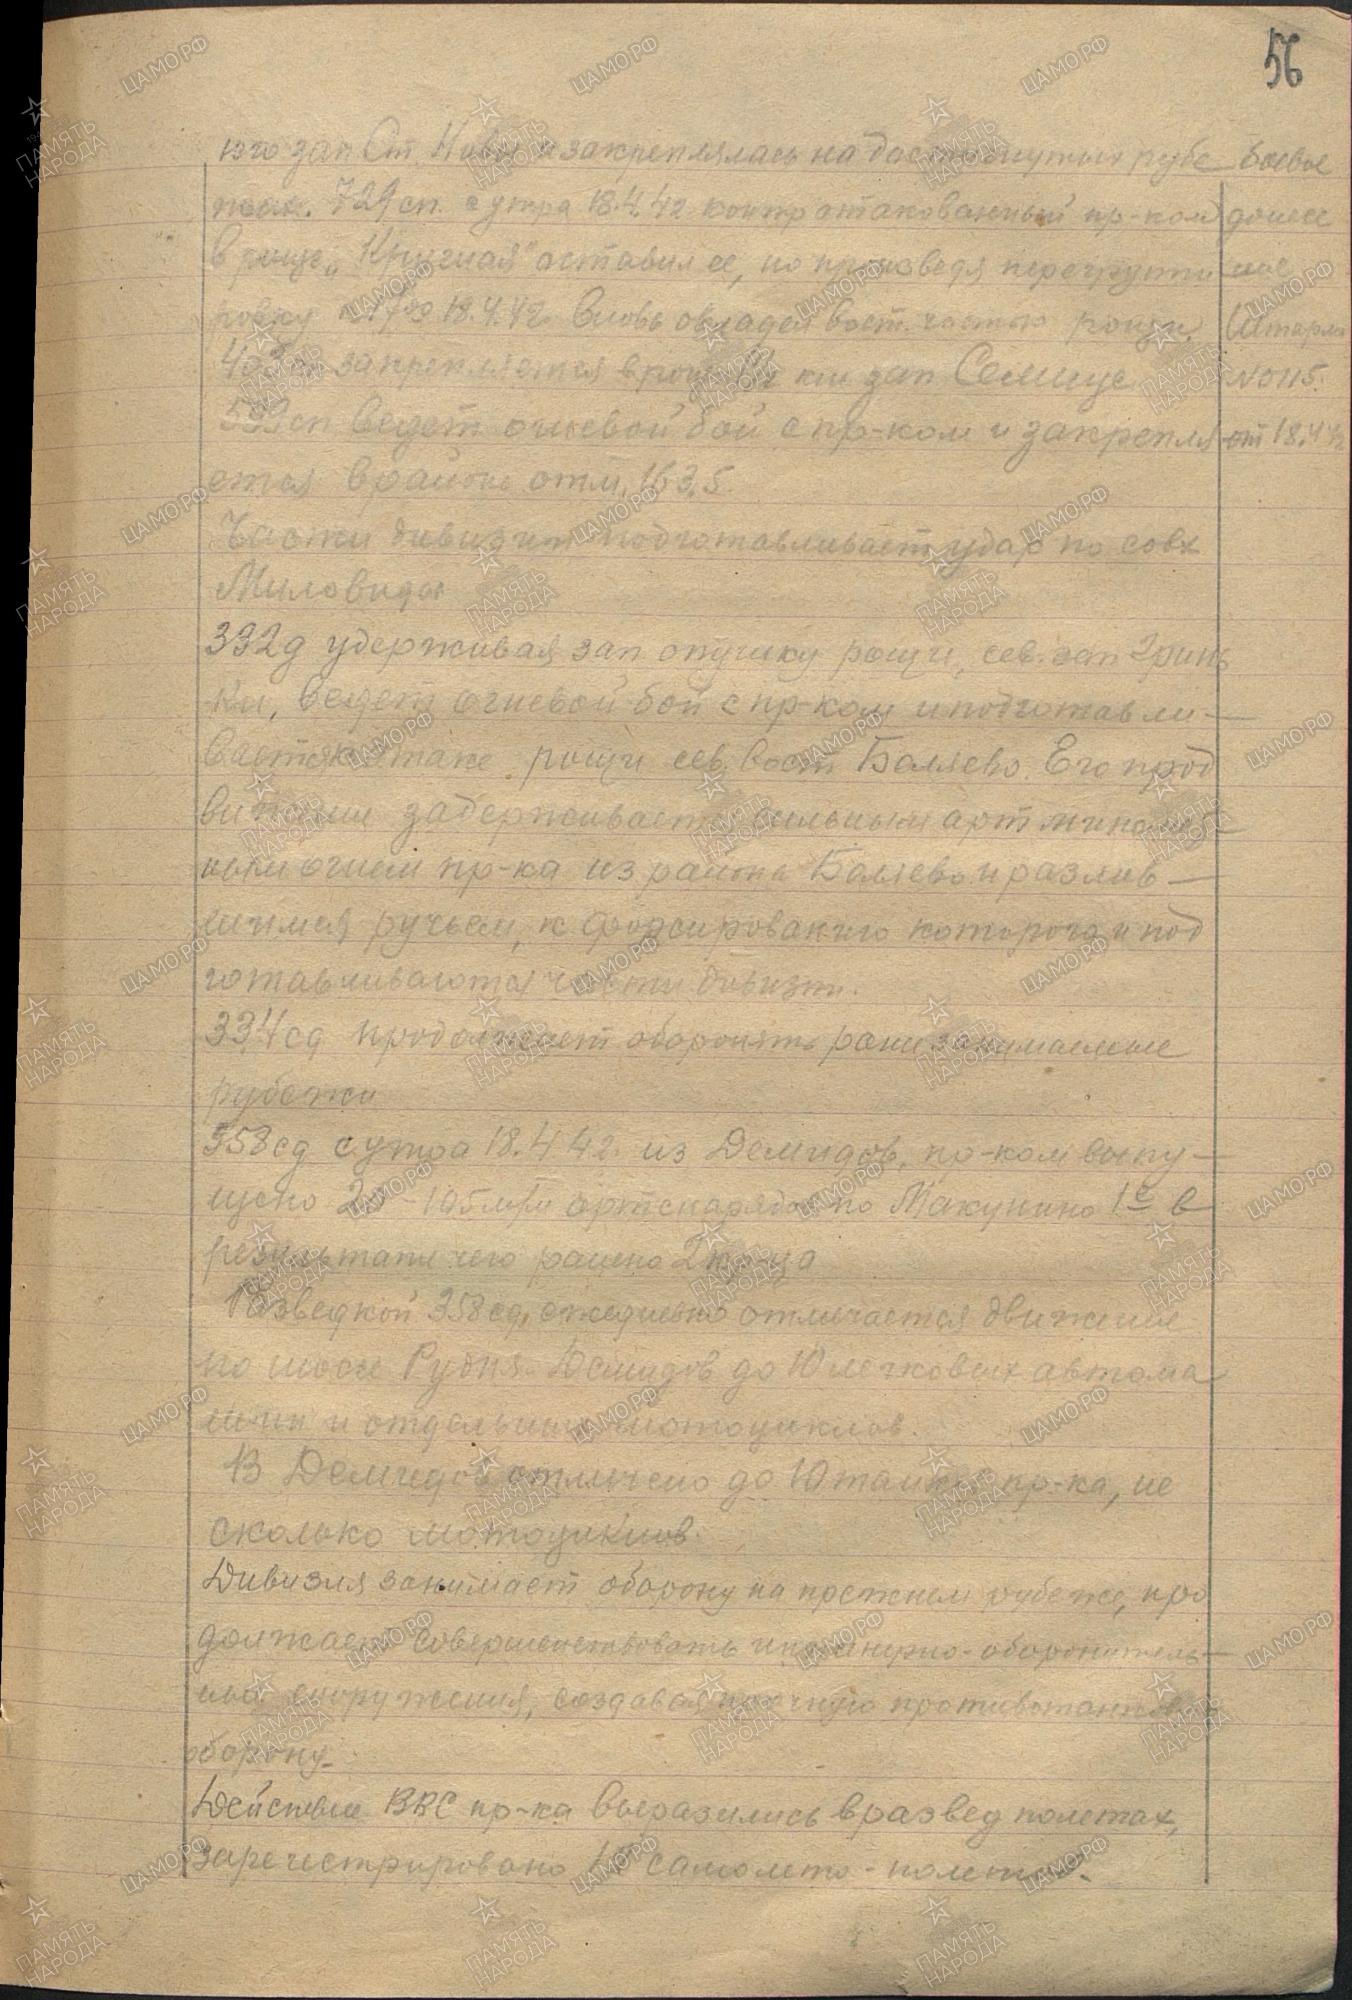 56
юго зап Ст. Нивы и закреплялась на достигнутых рубе
жах. 729 сп. с утра 18.4.42 контратакованный пр-ком
в роще "Круглая" оставил ее, но произведя перегруппи
ровку 18.4.42 вновь овладел вост. частью рощи.
закрепляется в роще км зап Селище
599 сп ведет огневой бой с пр-ком и закрепля
ется в районе отм. 163,5.
Части дивизии подготавливают удар по совх
Миловиды
332 д удерживая зап опушку рощи, сев. зап Гринь
ки, ведет огневой бой с пр-ком и подготавли-
вается к атаке рощи сев. вост Боляево. Его прод
вижение задерживается сильным арт миномет
ным огнем пр-ка из района Боляево и разлив-
шимся ручьем, к форсированию которого и под
готавливаются части дивизии.
334 сд продолжает оборонять ранее занимаемые
рубежи
358 сд с утра 18.4.42г. из Демидов, пр-ком выпу-
щено 20-105 м/м артснарядов по Макунино 1е в
результате чего ранено 2 кр-ца
Разведкой 358 сд, ежедневно отмечается движение
по шоссе Рудня-Демидов до 10 легковых автома
шин и отдельных мотоциклов.
В Демидов отмечено до 10 танков пр-ка, не
сколько мотоциклов.
Дивизия занимает оборону на прежнем рубеже, про
должает совершенствовать инженерно-оборонитель-
ные сооружения, создавая прочную противотанков.
оборону.
Действия ВВС пр-ка выразились в развед полетах,
зарегистрировано самолето-полетов.
Боевое
донесе
ние
Штарма
№0115.
от 18.4.42
ПАМЯТЬ НАРОДА
ЦАМО.РФ